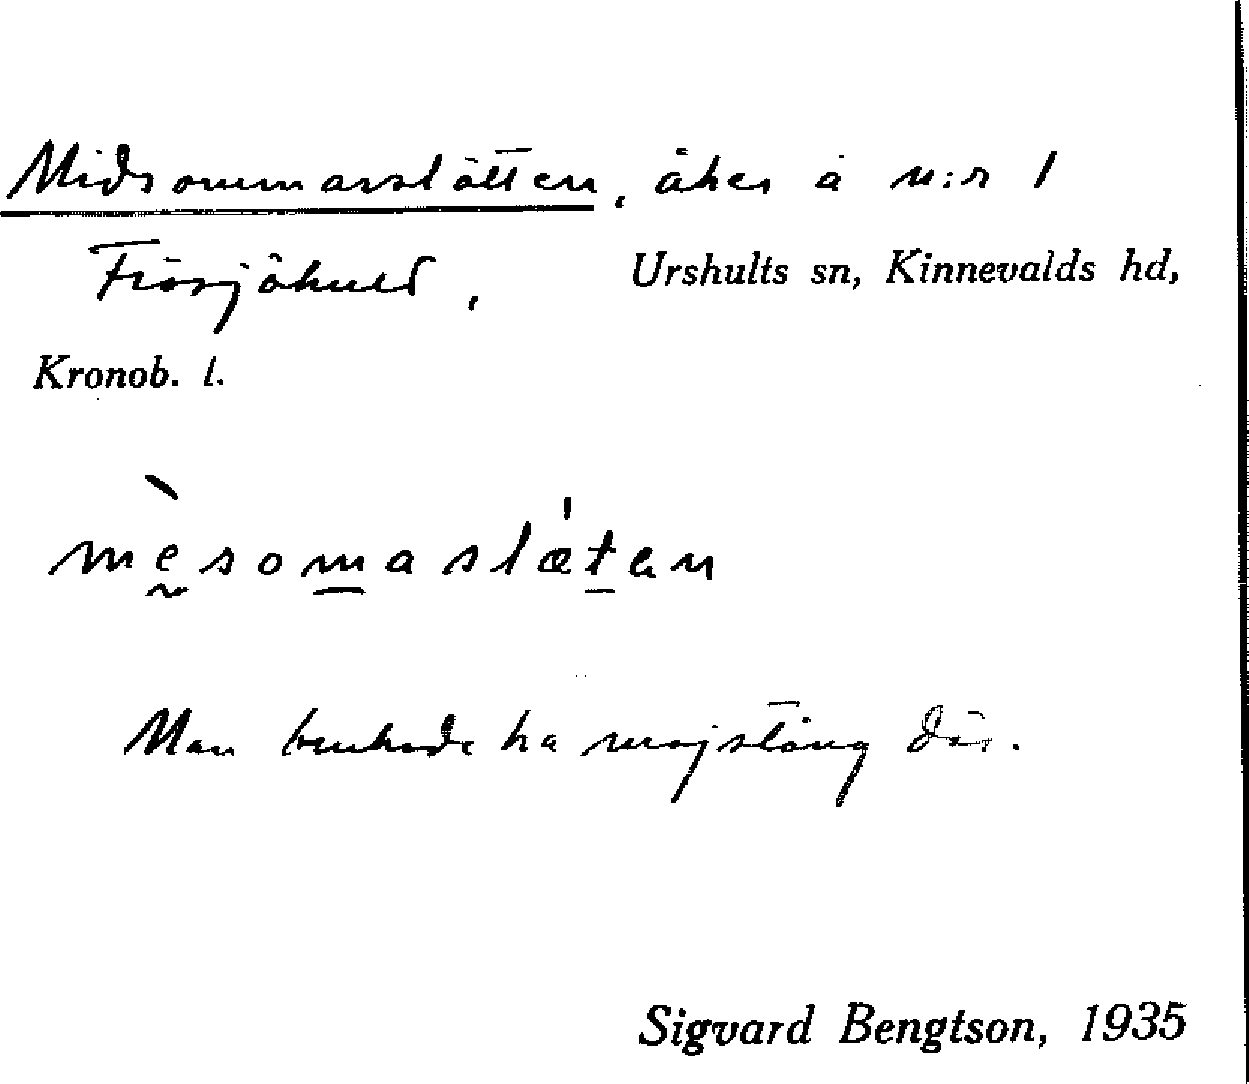 Midsommarslätten, åker å n:r 1
Frösjöhult, Urshults sn, Kinnevalds hd,
Kronob. l.
mèsomaslætan
Man brukade ha majstång där.
Sigvard Bengtson, 1935